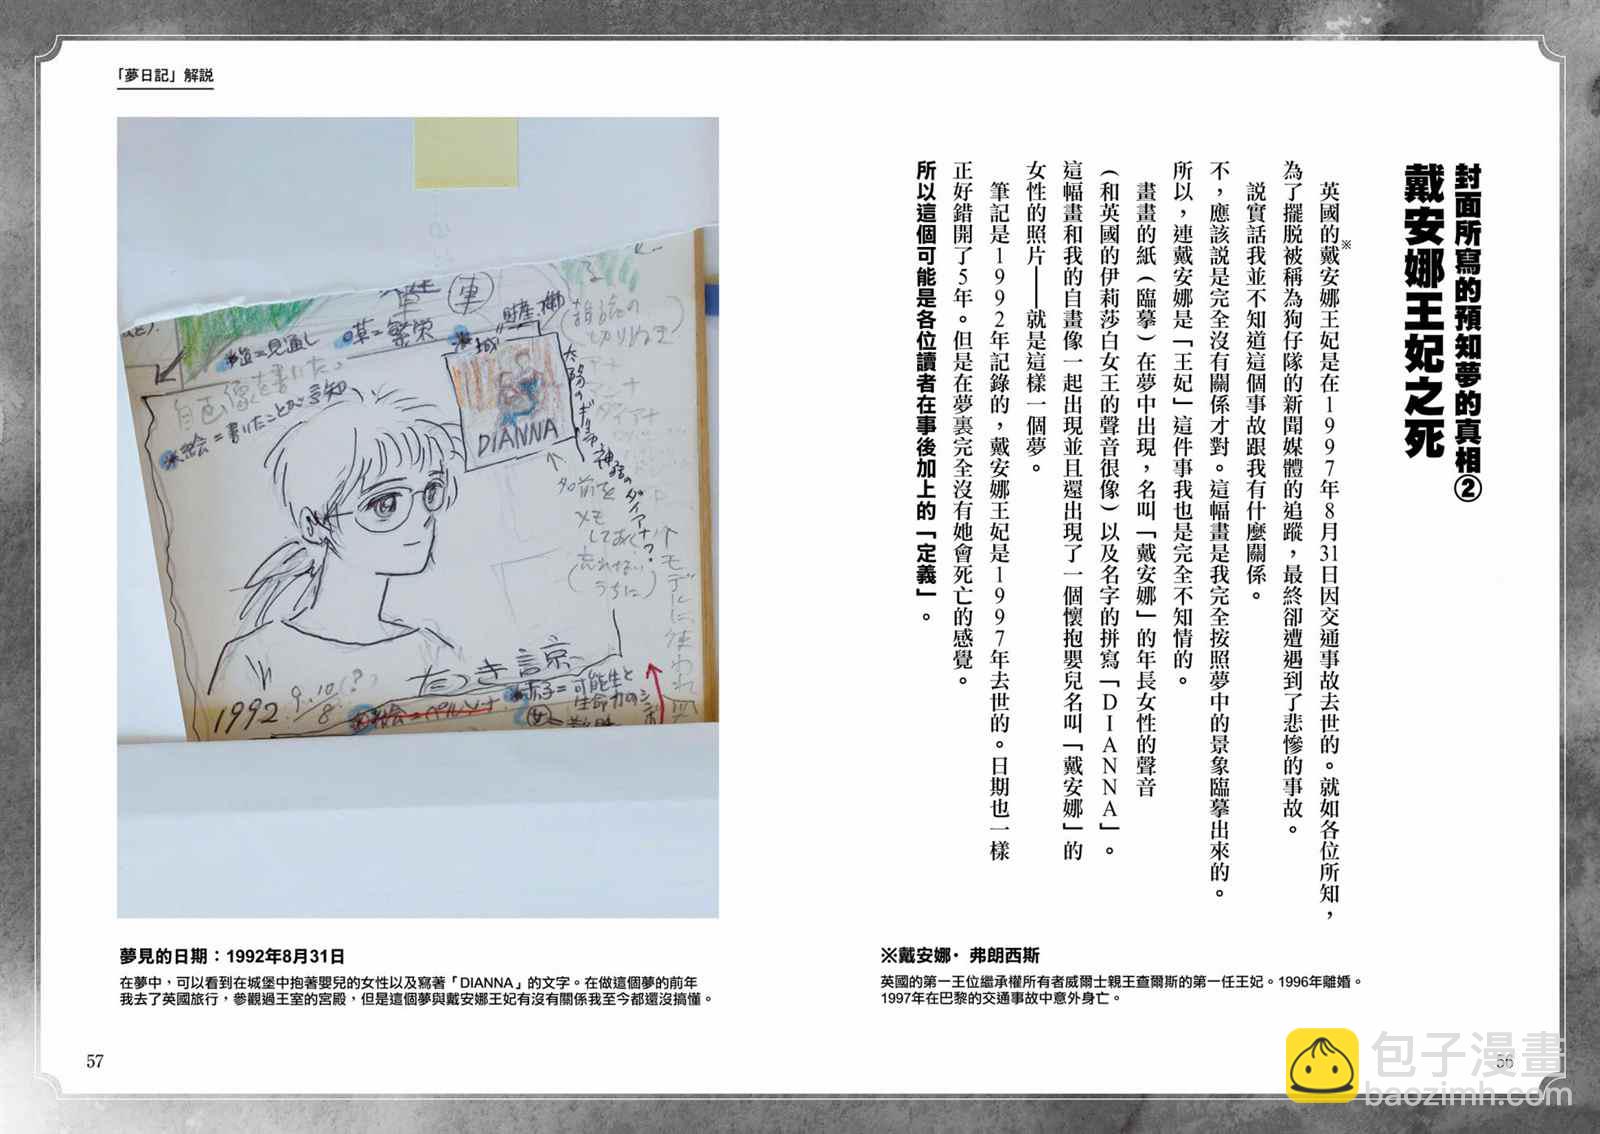 封面所寫的預知夢的真相②
戴安娜王妃之死
英國的戴安娜王妃是在1997年8月31日因交通事故去世的。就如各位所知，
※
為了擺脫被稱為狗仔隊的新聞媒體的追蹤，最終卻遭遇到了悲慘的事故。
說實話我並不知道這個事故跟我有什麼關係。
不，應該說是完全沒有關係才對。這幅畫是我完全按照夢中的景象臨摹出來的。
所以，連戴安娜是「王妃」這件事我也是完全不知情的。
畫畫的紙（臨摹）在夢中出現，名叫「戴安娜」的年長女性的聲音
（和英國的伊莉莎白女王的聲音很像）以及名字的拼寫「DIANNA」。
這幅畫和我的自畫像一起出現並且還出現了一個懷抱嬰兒名叫「戴安娜」的
女性的照片——就是這樣一個夢。
筆記是1992年記錄的，戴安娜王妃是1997年去世的。日期也一樣
正好錯開了5年。但是在夢裏完全沒有她會死亡的感覺。
所以這個可能是各位讀者在事後加上的「定義」。
※戴安娜·弗朗西斯
英國的第一王位繼承權所有者威爾士親王查爾斯的第一任王妃。1996年離婚。
1997年在巴黎的交通事故中意外身亡。
56
「夢日記」解説
車
草=繁栄
見通し
自画像を書いた
絵=書いたことがい認知
城=財産
切りぬき
DIANNA
太陽のギリシャ神話のダイアナ?
名前を
メモ
しておく
(忘れない
うちに)
モデルに使われ
たつき諒
1992.9.10(?)
8
赤子=可能性と
生命力の
絵=ペルソナ
夢見的日期：1992年8月31日
在夢中，可以看到在城堡中抱著嬰兒的女性以及寫著「DIANNA」的文字。在做這個夢的前年
我去了英國旅行，參觀過王室的宮殿，但是這個夢與戴安娜王妃有沒有關係我至今都還沒搞懂。
57
包子漫畫
baozimh.com